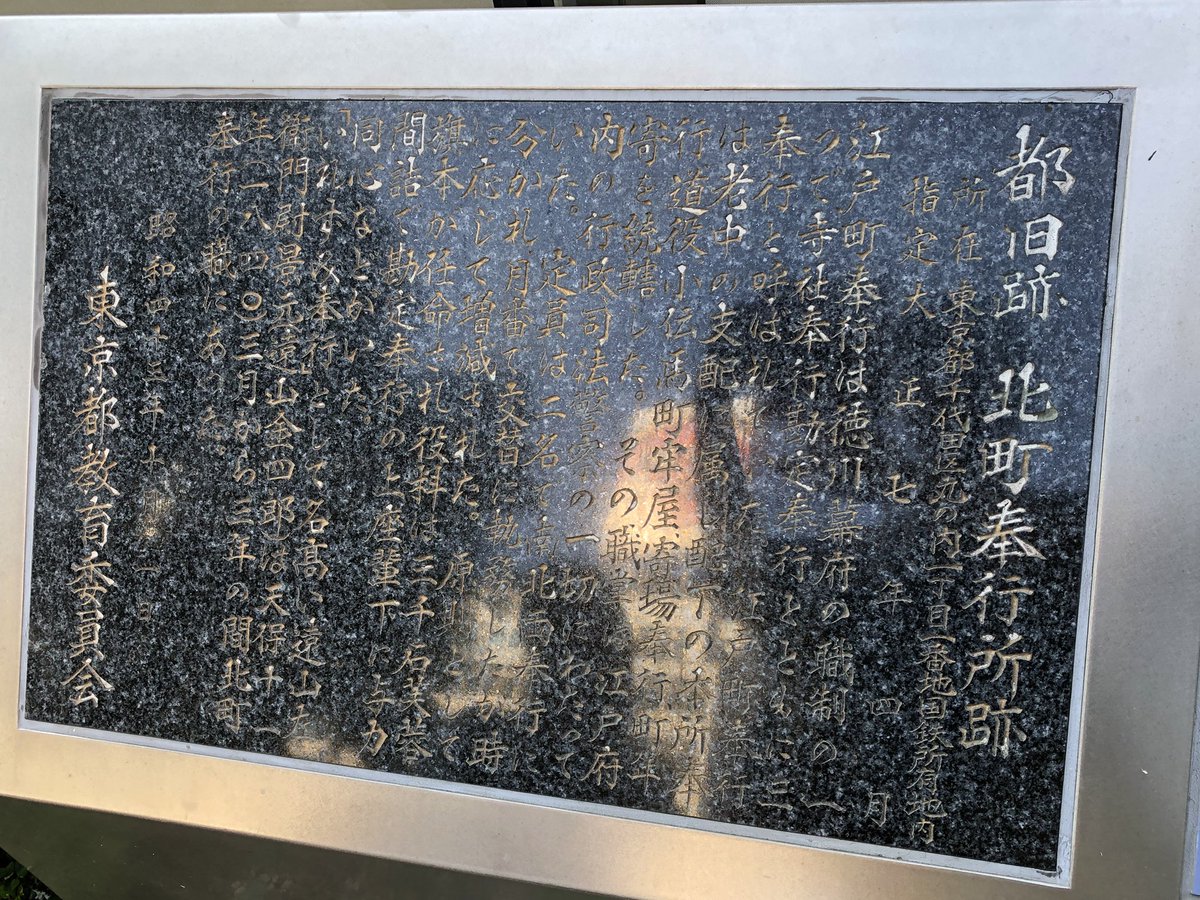 都旧跡 北町奉行所跡
所在 東京都千代田区丸の内一丁目一番地国鉄所有地内
指定 大正七年四月
江戸町奉行は徳川幕府の職制の一
つで寺社奉行勘定奉行とともに三
奉行と呼ばれて 江戸町奉行
は老中の支配に属し配下の本所奉
行道役小伝馬町牢屋、寄場奉行、町年
寄を統轄した。その職掌は江戸府
内の行政司法警察の一切にわたって
いた。定員は二名で南北両奉行に
分かれ月番で交替に執務したが時
に応じて増減された。原則として
旗本が任命され役料は三千石芙蓉
間詰で勘定奉行の上座輩下に与力
同心などがいた。
いれずみ奉行として、名高い遠山左
衛門尉景元(遠山金四郎)は天保十一
年(一八四〇)三月から三年の間北町
奉行の職にあった。
昭和四十三年十 月一日
東京都教育委員会